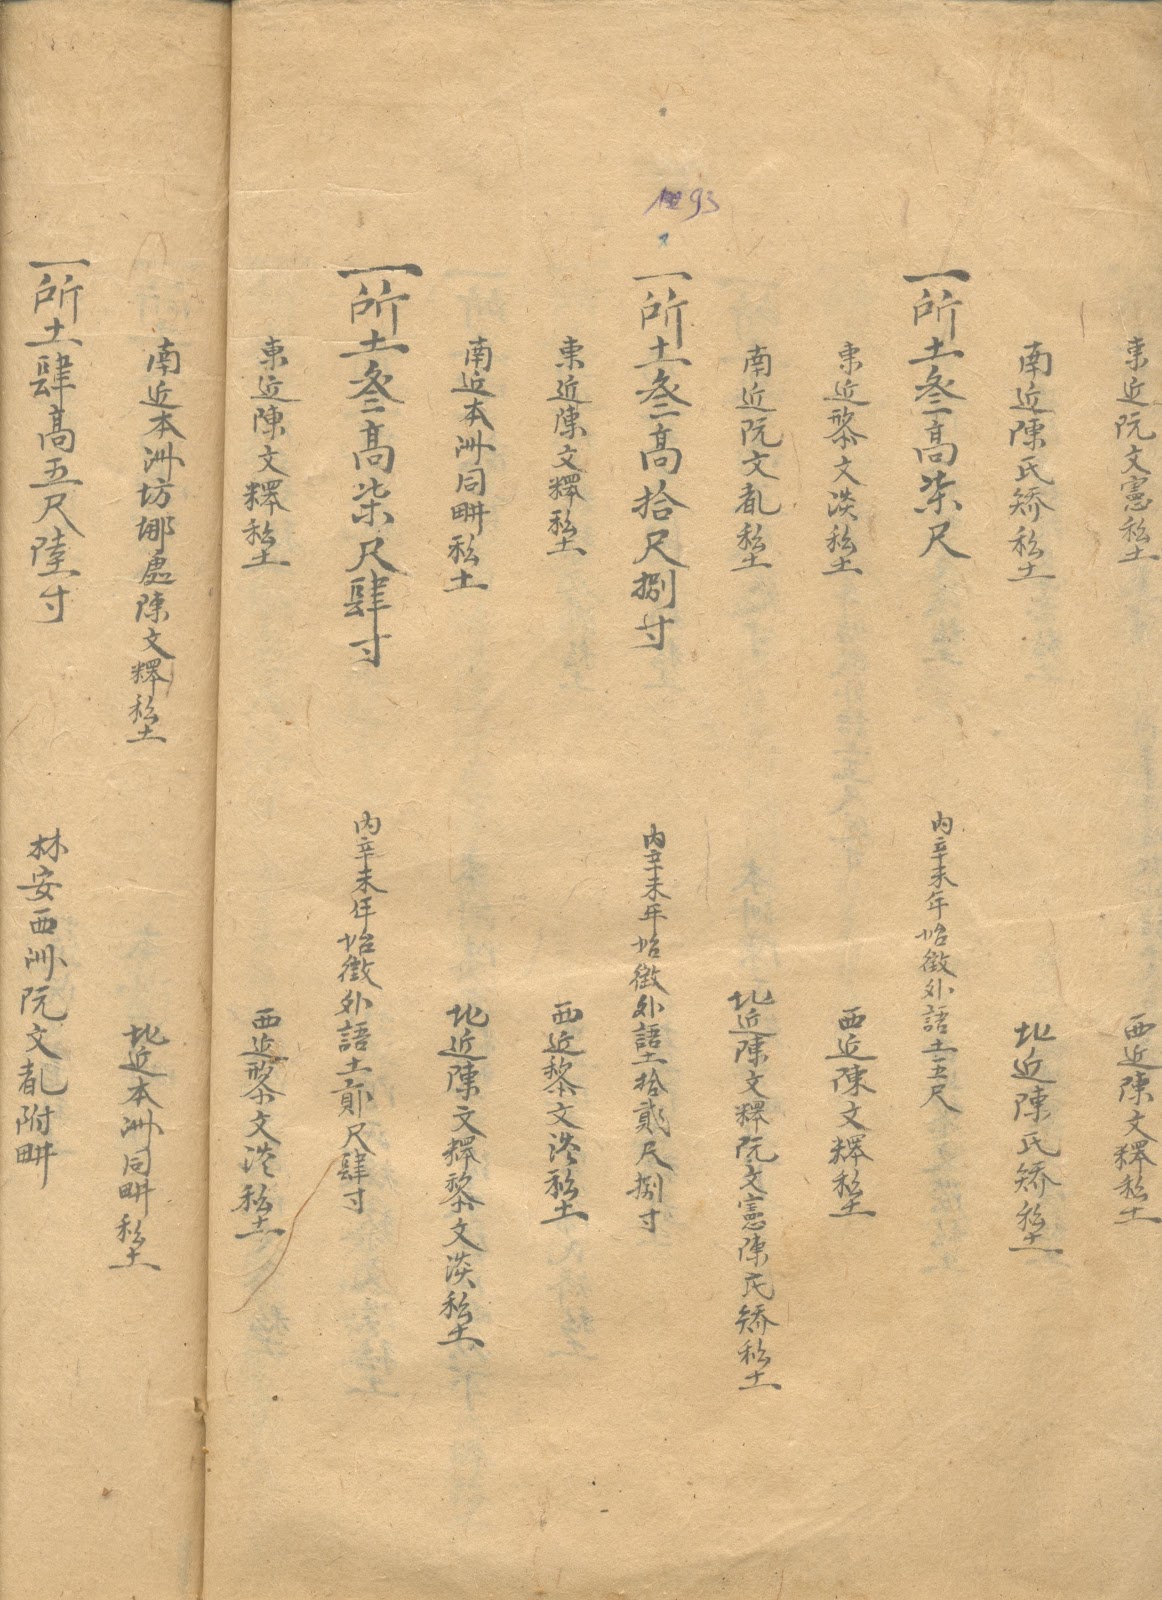 東近阮文憲私土 西近陳文釋私土
南近陳氏矯私土 北近陳氏矯私土
一所土叁高柒尺 內辛未年始徵外語土五尺
東近黎文淡私土 西近陳文釋私土
南近阮文亂私土 北近陳文釋阮文憲陳氏矯私土
1293
一所土叁高拾尺捌寸 內辛未年始徵外語土拾貳尺捌寸
東近陳文釋私土 西近黎文淡私土
南近本洲同畊私土 北近陳文釋黎文淡私土
一所土叁高柒尺肆寸 內辛未年始徵外語土貳尺肆寸
東近陳文釋私土 西近黎文淡私土
南近本洲坊哪處陳文釋私土 北近本洲同畊私土
一所土肆高五尺陸寸 林安西洲阮文亂附畊